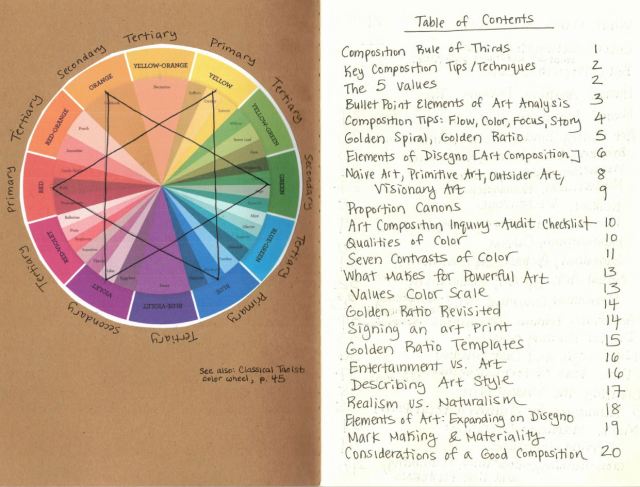 Tertiary
Primary
Tertiary
Secondary
Tertiary
Primary
Tertiary
Secondary
Tertiary
Primary
Tertiary
Secondary
YELLOW-ORANGE
YELLOW
YELLOW-GREEN
GREEN
BLUE-GREEN
BLUE
BLUE-VIOLET
VIOLET
RED-VIOLET
RED
RED-ORANGE
ORANGE
See also: Classical Taoist
color wheel, p. 45
Table of Contents
Composition Rule of Thirds 1
Key Composition Tips/Techniques 2
The 5 Values 2
Bullet Point Elements of Art Analysis 3
Composition Tips: Flow, Color, Focus, Story 4
Golden Spiral, Golden Ratio 5
Elements of Disegno [Art Composition] 6
Naive Art, Primitive Art, Outsider Art, 8
Visionary Art
Proportion Canons 9
Art Composition Inquiry - Audit Checklist 10
Qualities of Color 10
Seven Contrasts of Color 11
What Makes for Powerful Art 13
Values Color Scale 13
Golden Ratio Revisited 14
Signing an art Print 14
Golden Ratio Templates 15
Entertainment vs. Art 16
Describing Art Style 16
Realism vs. Naturalism 17
Elements of Art: Expanding on Disegno 18
Mark Making & Materiality 19
Considerations of a Good Composition 20